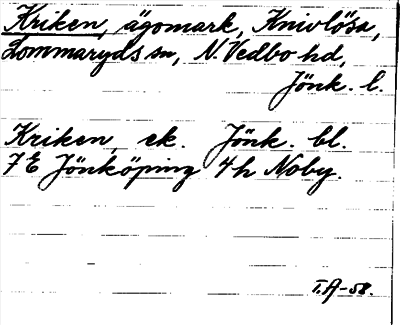 Kriken, ägomark, Knivlösa,
Lommaryds sn, N. Vedbo hd,
Jönk. l.
Kriken, ek. Jönk. bl.
7E Jönköping 4h Noby.
I.A-58.